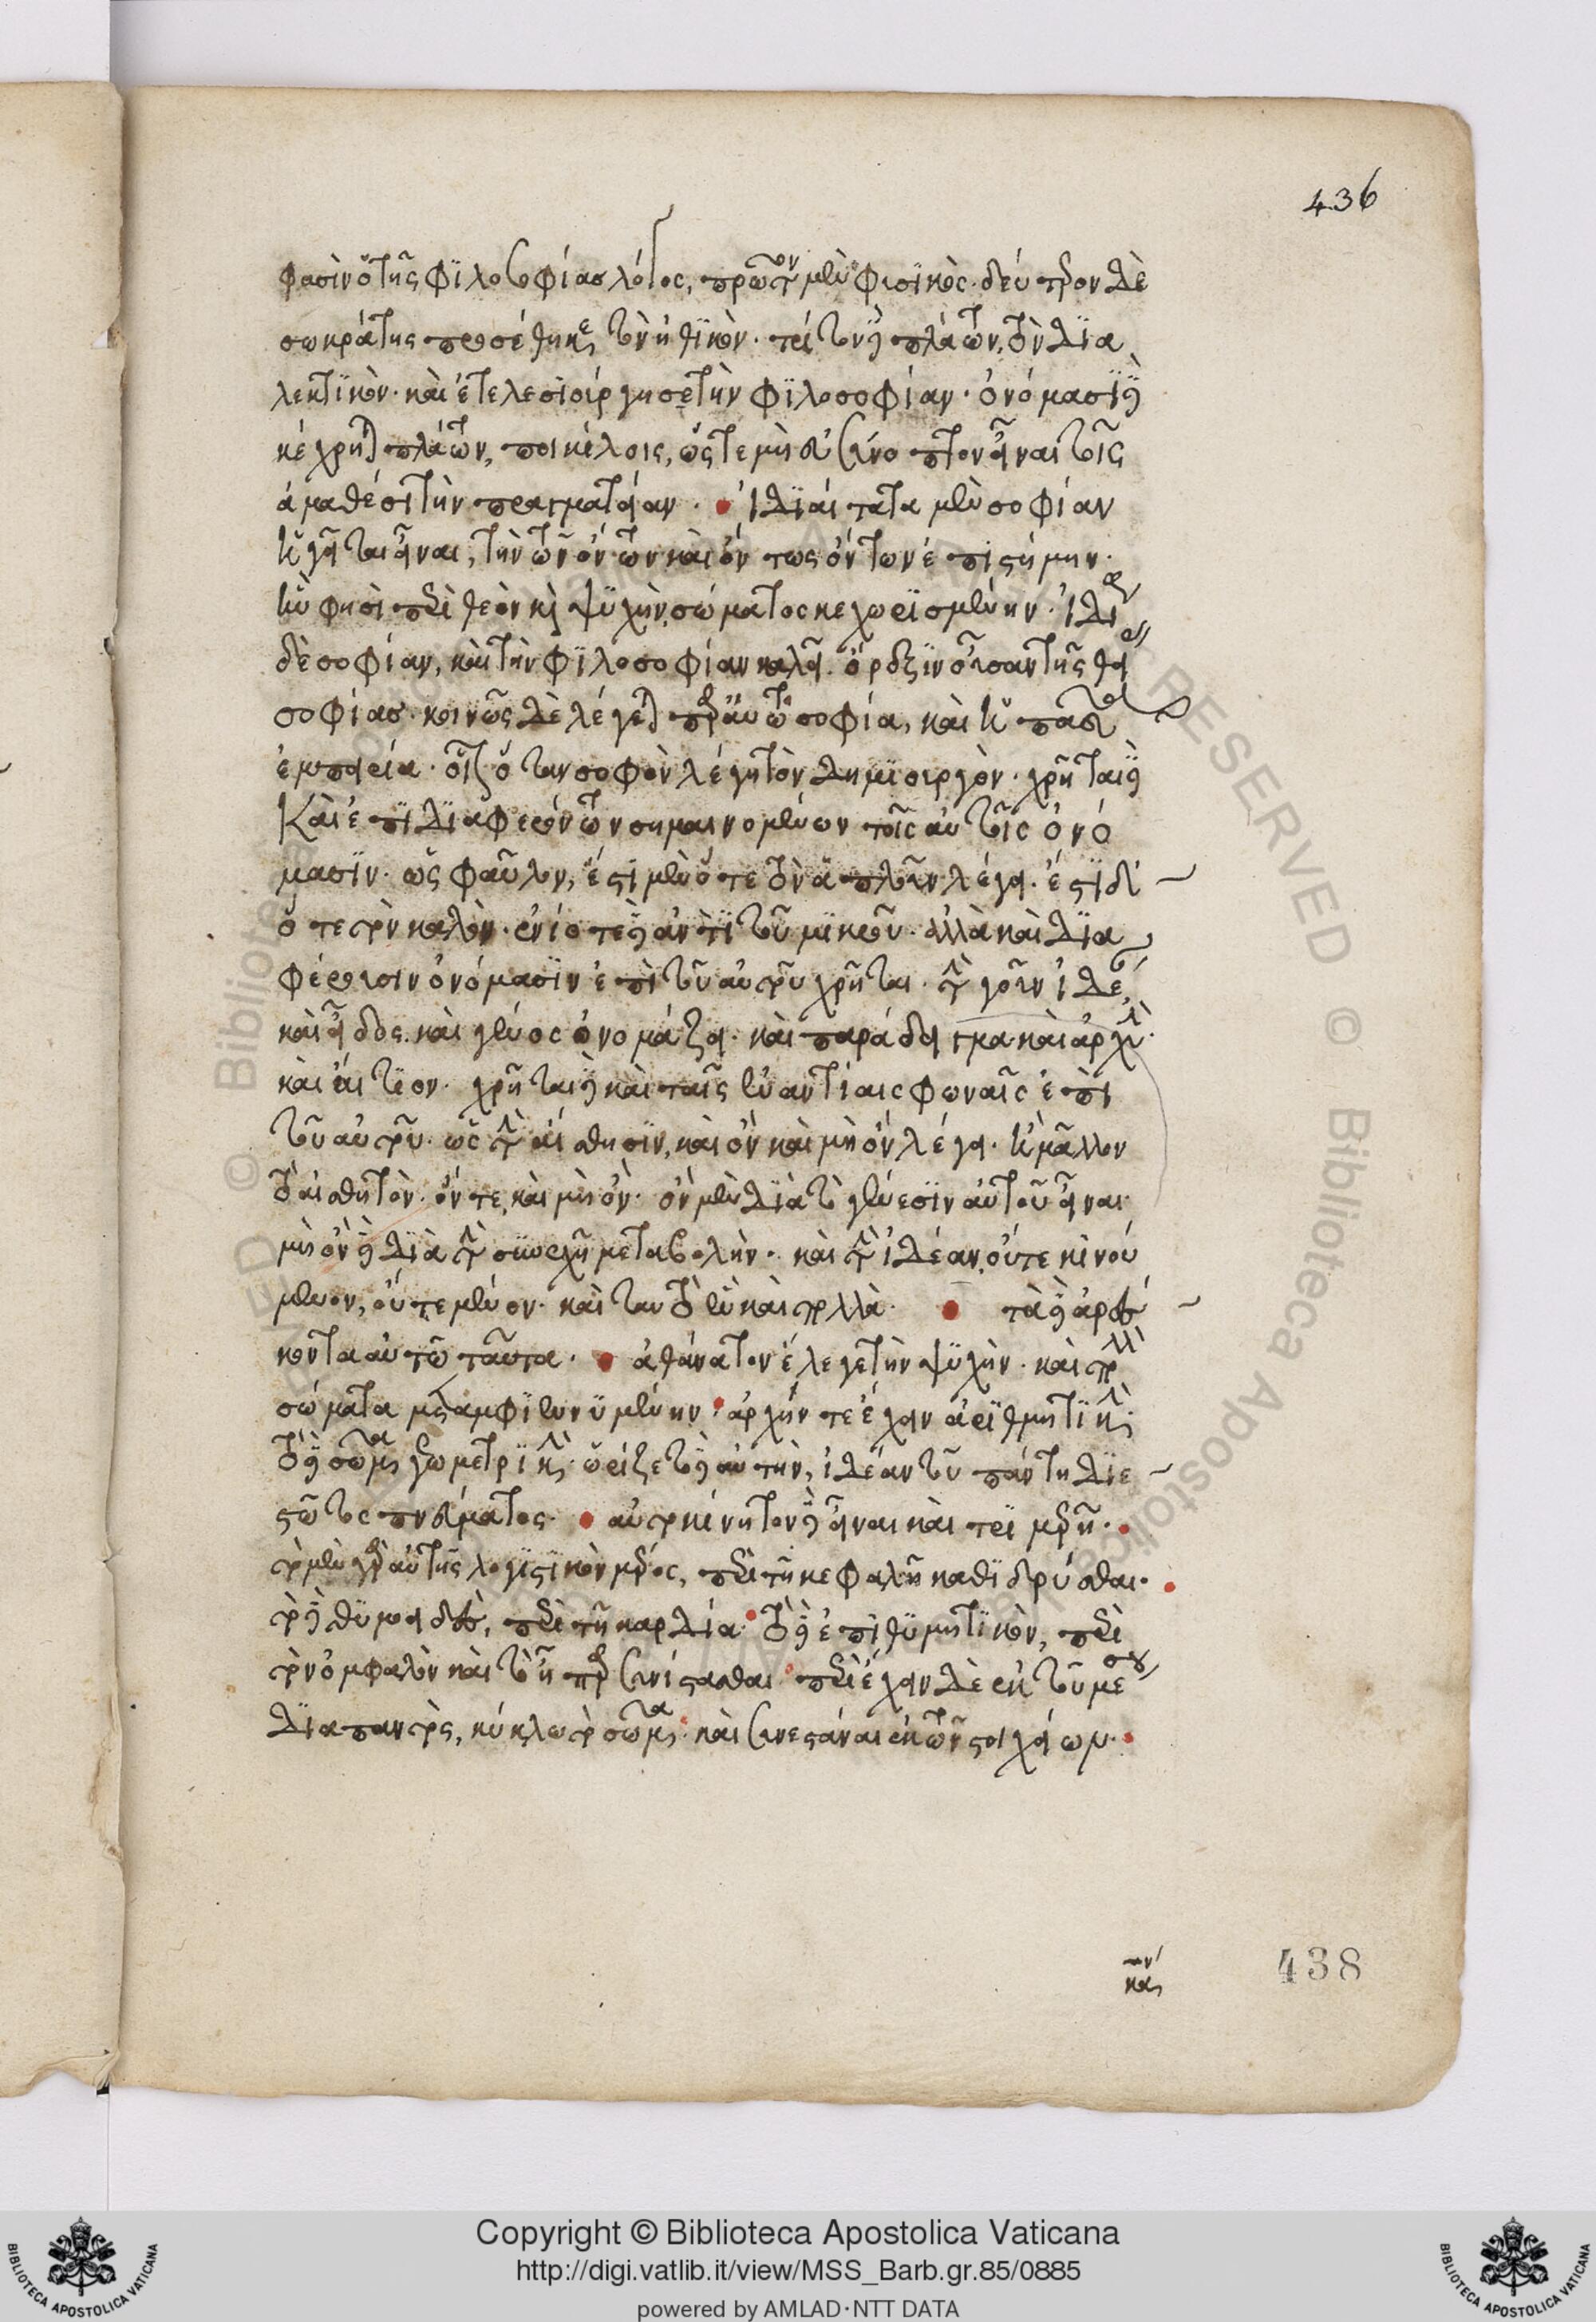 436
φασὶν ὁ τῆς φϊλοσοφίας λόγος, πρῶτον μὲν φυσϊκὸς· δεύτερον δὲ
σωκράτης προσέθηκε τὸν ἠθϊκὸν· τρίτον δὲ πλάτων, τὸν δϊα
λεκτϊκὸν· καὶ ἐτελεσιούργησε τὴν φϊλοσοφίαν· ὀνόμασϊ δὲ
κέχρηται πλάτων, ποικίλοις, ὥστε μὴ εὐσύνοπτον εἶναι τοῖς
ἀμαθέσι τὴν πραγματείαν· ἰδϊαίτατα μὲν σοφίαν
ἡγεῖται εἶναι, τὴν τῶν νοητῶν καὶ ὄντως ὄντων ἐπιστήμην·
ἥν φησὶ περὶ θεὸν καὶ ψϋχὴν, σώματος κεχωρϊσμένην· ἰδία
δὲ σοφίαν, καὶ τὴν φϊλοσοφίαν καλεῖ· ὄρεξϊν οὖσαν τῆς θείας
σοφίας· κοινῶς δὲ λέγεται παρ' αὐτῶ σοφία, καὶ ἡ πᾶσα
ἐμπειρία· οἷον ὅταν σοφὸν λέγη τὸν δημϊουργὸν· χρῆται δὲ
Καὶ ἐπὶ δϊαφερόντων σημαινομένων τοῖς αὐτοῖς ὀνό
μασϊν· ὡς φαῦλον, ἔστι μὲν ὅτε τὸν ἁπλοῦν λέγει· ἔστϊ δ'
ὅτε τὸν καλὸν· ἐνίοτε δὲ ἀντὶ τοῦ μϊκροῦ· ἀλλὰ καὶ δϊα
φέρουσιν ὀνόμασϊν ἐπὶ τοῦ αὐτοῦ χρῆται· τὴν γοῦν ἰδέαν
καὶ εἶδος καὶ γένος ὀνομάζει· καὶ παράδειγμα καὶ ἀρχὴν·
καὶ αἴτϊον· χρῆται δὲ καὶ ταῖς ἐναντίαις φωναῖς ἐπὶ
τοῦ αὐτοῦ· ὡς τὴν αἴσθησϊν, καὶ ὂν καὶ μὴ ὂν λέγει· ἢ μᾶλλον
τὸ αἰσθητὸν· ὄν τε, καὶ μὴ ὂν· ὂν μὲν δϊὰ τὸ γένεσϊν αὐτοῦ εἶναι·
μὴ ὂν δὲ δϊὰ τὴν συνεχῆ μεταβολὴν· καὶ τὴν ἰδέαν, οὔτε κινού
μενον, οὔτε μένον· καὶ ταυτὸ ἓν καὶ πολλὰ· τὰ δὲ ἀρέσ
κοντα αὐτῶ ταῦτα· ἀθάνατον ἔλεγε τὴν ψϋχὴν· καὶ πολλὰ
σώματα μεταμφϊεννϋμένην· ἀρχήν τε ἔχειν ἀρϊθμητϊκὴν·
τὸ δὲ σῶμα γεωμετρϊκὴν· ὡρίζετο δὲ αὐτὴν, ἰδέαν τοῦ πάντη δϊε
στῶτος πνεύματος· αὐτοκίνητον δὲ εἶναι καὶ τρϊμερῆ·
τὸ μὲν γὰρ αὐτῆς λογϊστϊκὸν μέρος, περὶ τῆ κεφαλῆ καθϊδρύσθαι·
τὸ δὲ θϋμοειδὲς, περὶ τῆ καρδία· τὸ δὲ ἐπιθϋμητϊκὸν, περὶ
τὸν ὀμφαλὸν καὶ τὸ ἧπαρ συνίστασθαι· περιέχειν δὲ ἐκ τοῦ μέσου
δϊαπαντὸς, κύκλω τὸ σῶμα· καὶ συνεστάναι ἐκ τῶν στοιχείων·
438
Copyright © Biblioteca Apostolica Vaticana
http://digi.vatlib.it/view/MSS_Barb.gr.85/0885
powered by AMLAD·NTT DATA